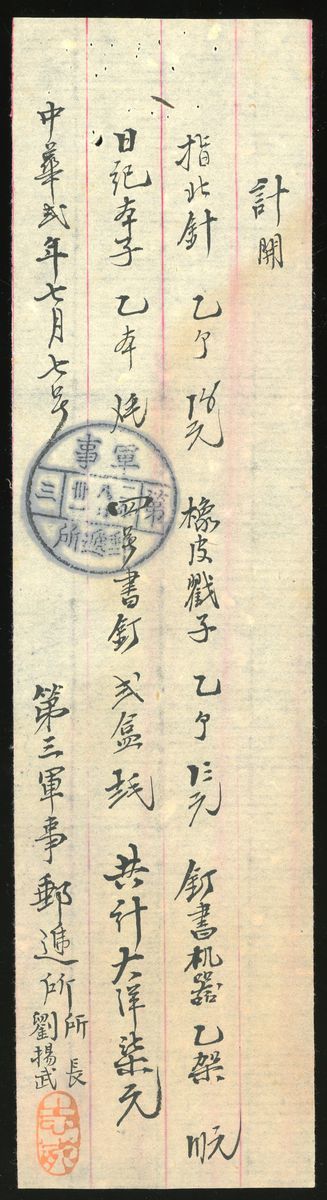 計開
指北針 乙個 元 橡皮戳子 乙個 元 釘書机器 乙架 元
日記本子 乙本 四號書釘 弍盒 共計大洋柒元
中華弍年七月七号
第三軍事郵遞所所長
劉揚武
軍事
第 三
郵遞所